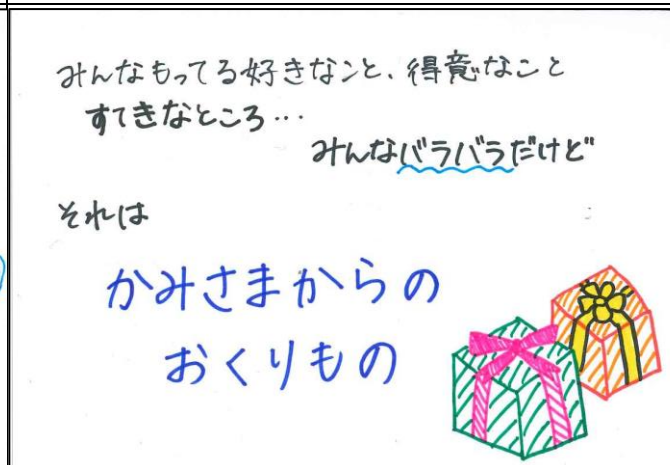 みんなもってる好きなこと、得意なこと
すてきなところ…
みんなバラバラだけど
それは
かみさまからの
おくりもの